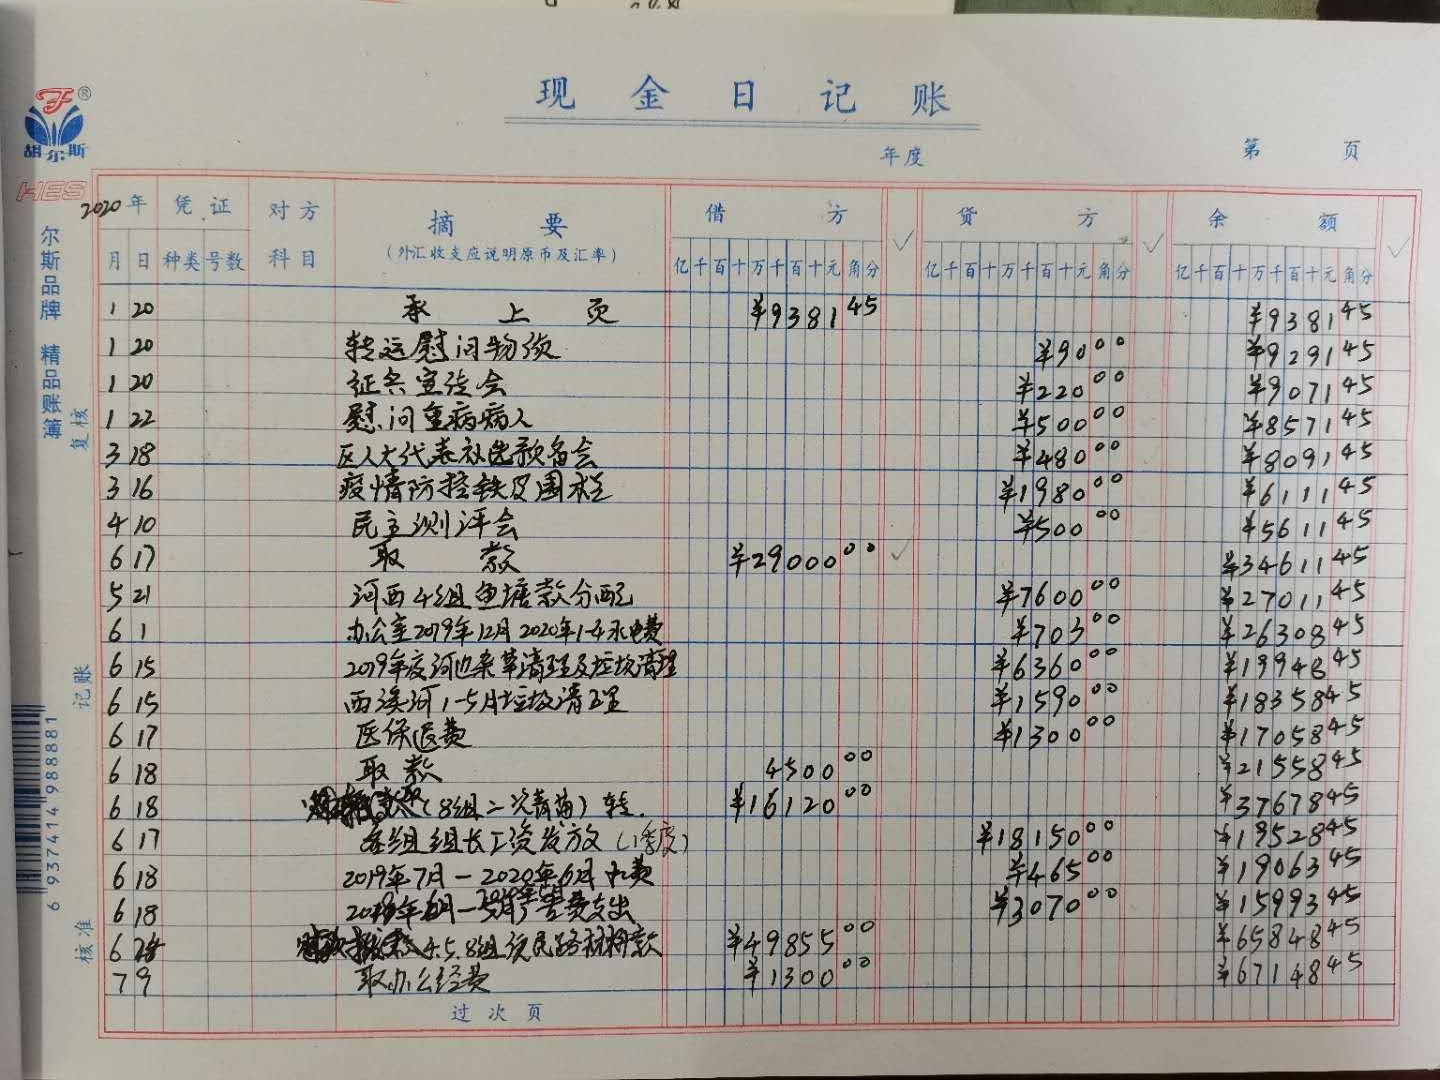 现金日记账
年度
第 页
胡尔斯
HES
尔斯品牌 精品账簿
复核
记账
核准
6 937414 988881
2020年 凭证 对方 摘要 借方 贷方 余额
月 日 种类 号数 科目 (外汇收支应说明原币及汇率) 亿千百十万千百十元角分 亿千百十万千百十元角分 亿千百十万千百十元角分
1 20 承上页 ¥9381 45 ¥9381 45
1 20 转运慰问物资 ¥90 00 ¥9291 45
1 20 征兵宣传会 ¥220 00 ¥9071 45
1 22 慰问重病病人 ¥500 00 ¥8571 45
3 18 区人大代表补选预备会 ¥480 00 ¥8091 45
3 16 疫情防控铁皮围栏 ¥1980 00 ¥6111 45
4 10 民主测评会 ¥500 00 ¥5611 45
6 17 取款 ¥29000 00 ¥34611 45
5 21 河西4组鱼塘款分配 ¥7600 00 ¥27011 45
6 1 办公室2019年12月2020年1-4水电费 ¥703 00 ¥26308 45
6 15 2019年度河边杂草清理及垃圾清理 ¥6360 00 ¥19948 45
6 15 西溪河1-5月垃圾清理 ¥1590 00 ¥18358 45
6 17 医保退费 ¥1300 00 ¥17058 45
6 18 取款 4500 00 ¥21558 45
6 18 (8组二次青苗)转. ¥16120 00 ¥37678 45
6 17 各组组长工资发放(1季度) ¥18150 00 ¥19528 45
6 18 2019年7月-2020年6月 费 ¥465 00 ¥19063 45
6 18 费支出 ¥3070 00 ¥15993 45
6 4.5.8组 民路材料款 ¥49855 00 ¥65848 45
7 9 取办公经费 ¥1300 00 ¥67148 45
过次页